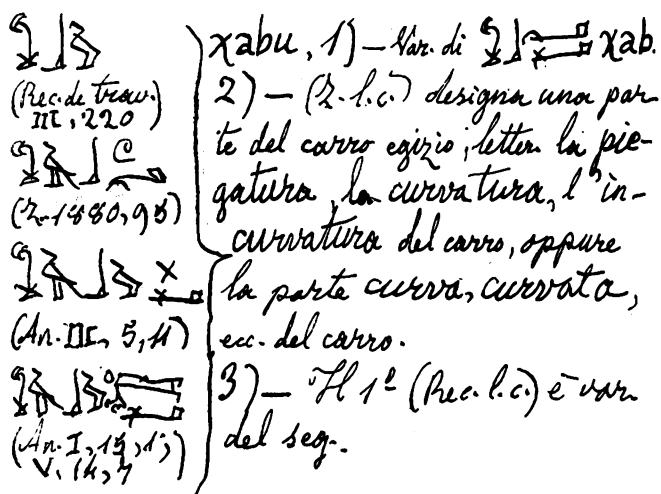 (Rec. de trav.)
III, 220)
(Z. 1880, 95)
(An. III, 5, 11)
(An. I, 15, 1;
V, 14, 7
xabu, 1) — Var. di xab.
2) — (Z. l. c.) designa una par
te del carro egizio; letter. la pie-
gatura, la curvatura, l'in-
curvatura del carro, oppure
la parte curva, curvata,
ecc. del carro.
3) — Il 1º (Rec. l. c.) è var.
del seg.